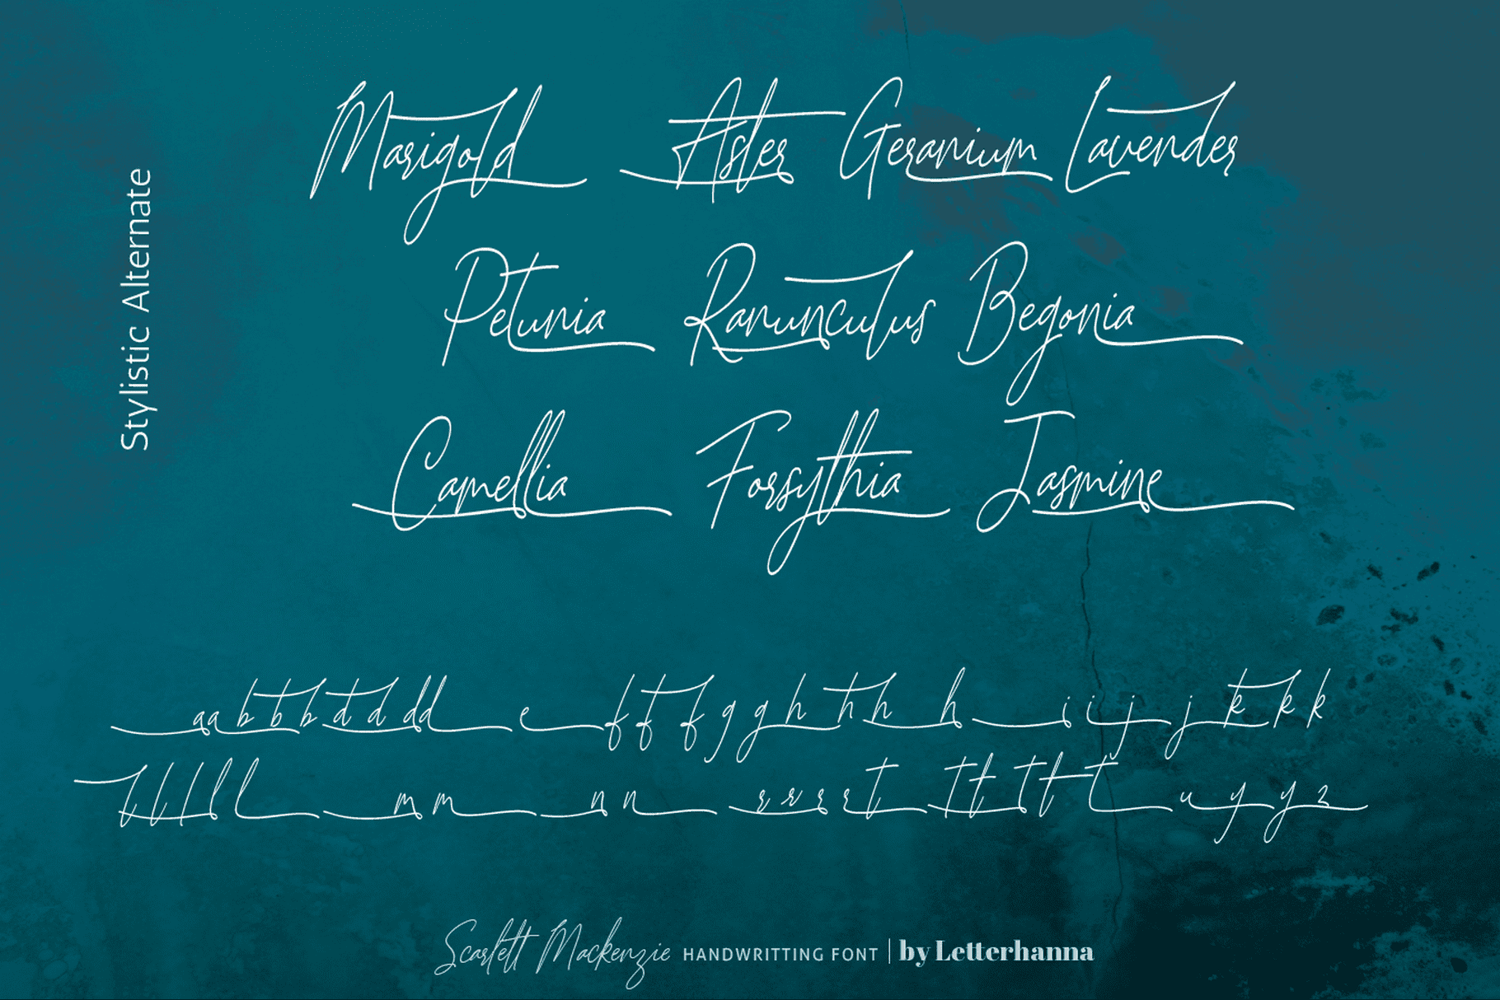 Stylistic Alternate
Marigold Aster Geranium Lavender
Petunia Ranunculus Begonia
Camellia Forsythia Jasmine
a a b b b d d d d e f f f g g h h h h i i j j k k k
l l l l m m n n r r r r t t t t t t u y y z
Scarlett Mackenzie HANDWRITTING FONT | by Letterhanna